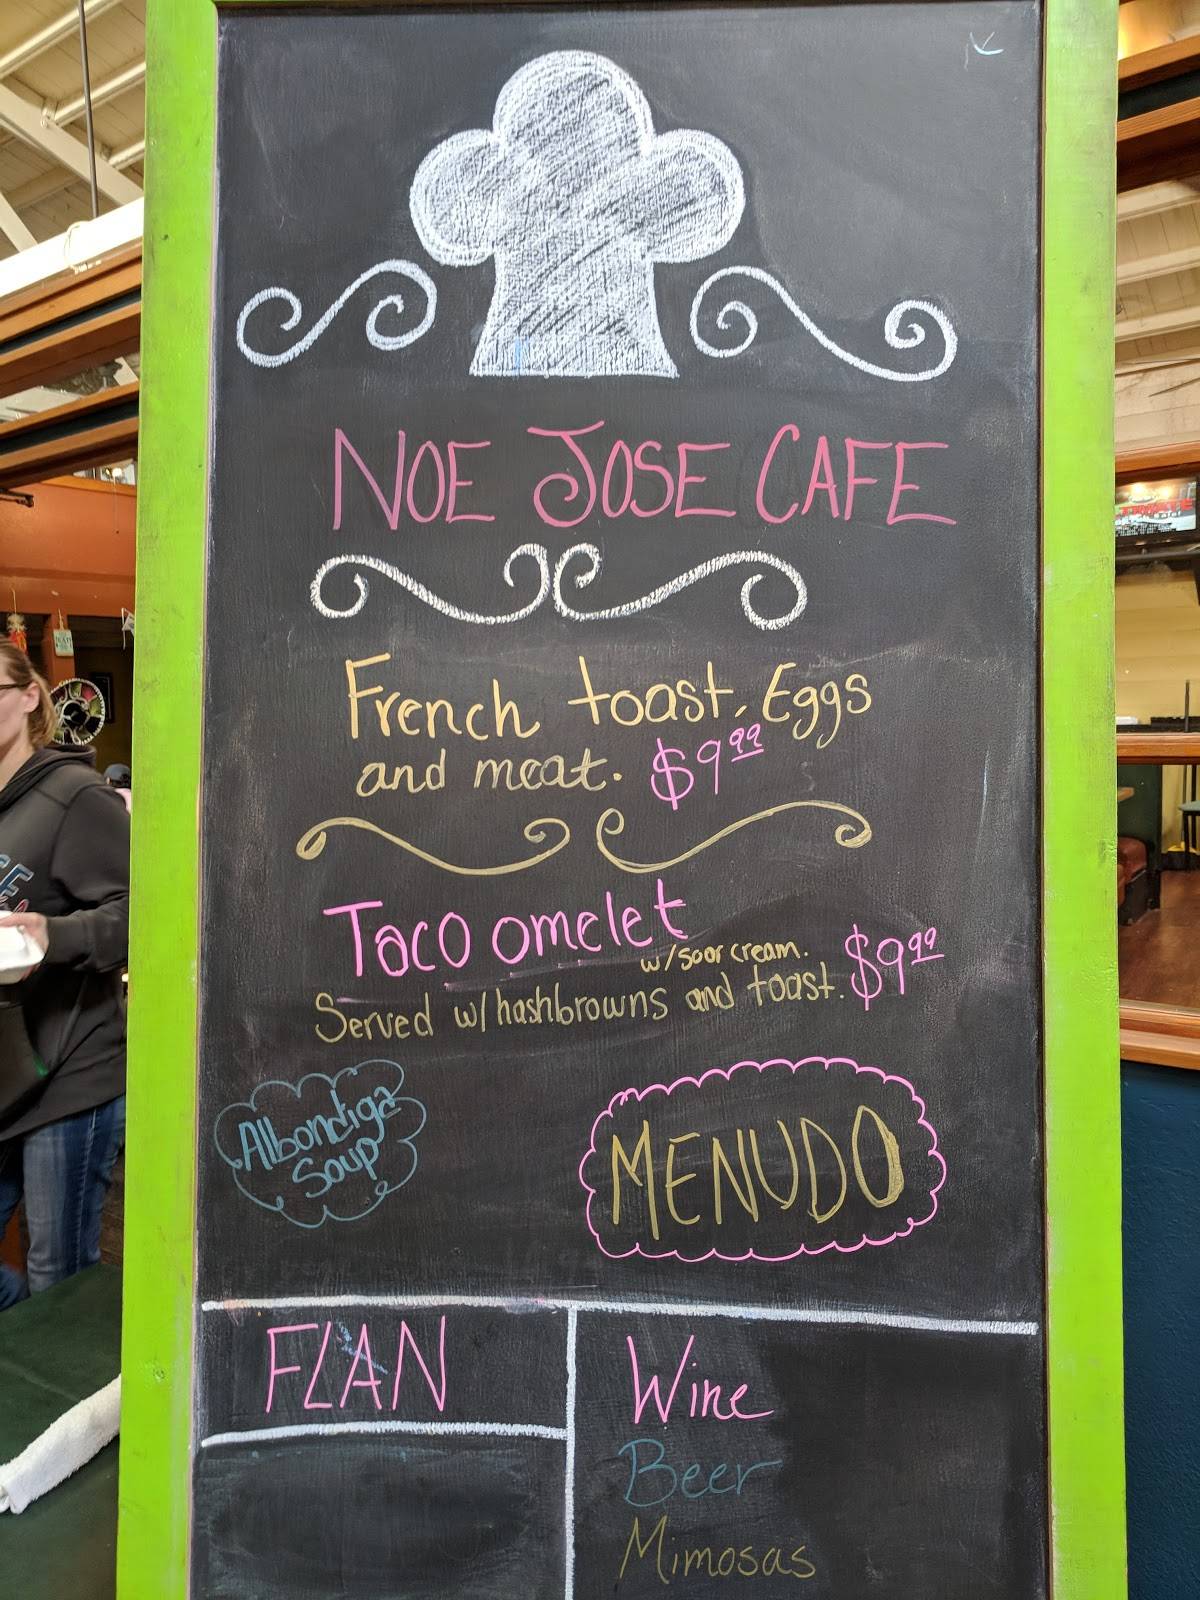 NOE JOSE CAFE
French toast, Eggs
and meat. $9.99
Taco omelet
w/soor cream. $9.99
Served w/hashbrowns and toast.
Albondiga
Soup
MENUDO
FLAN
Wine
Beer
Mimosas